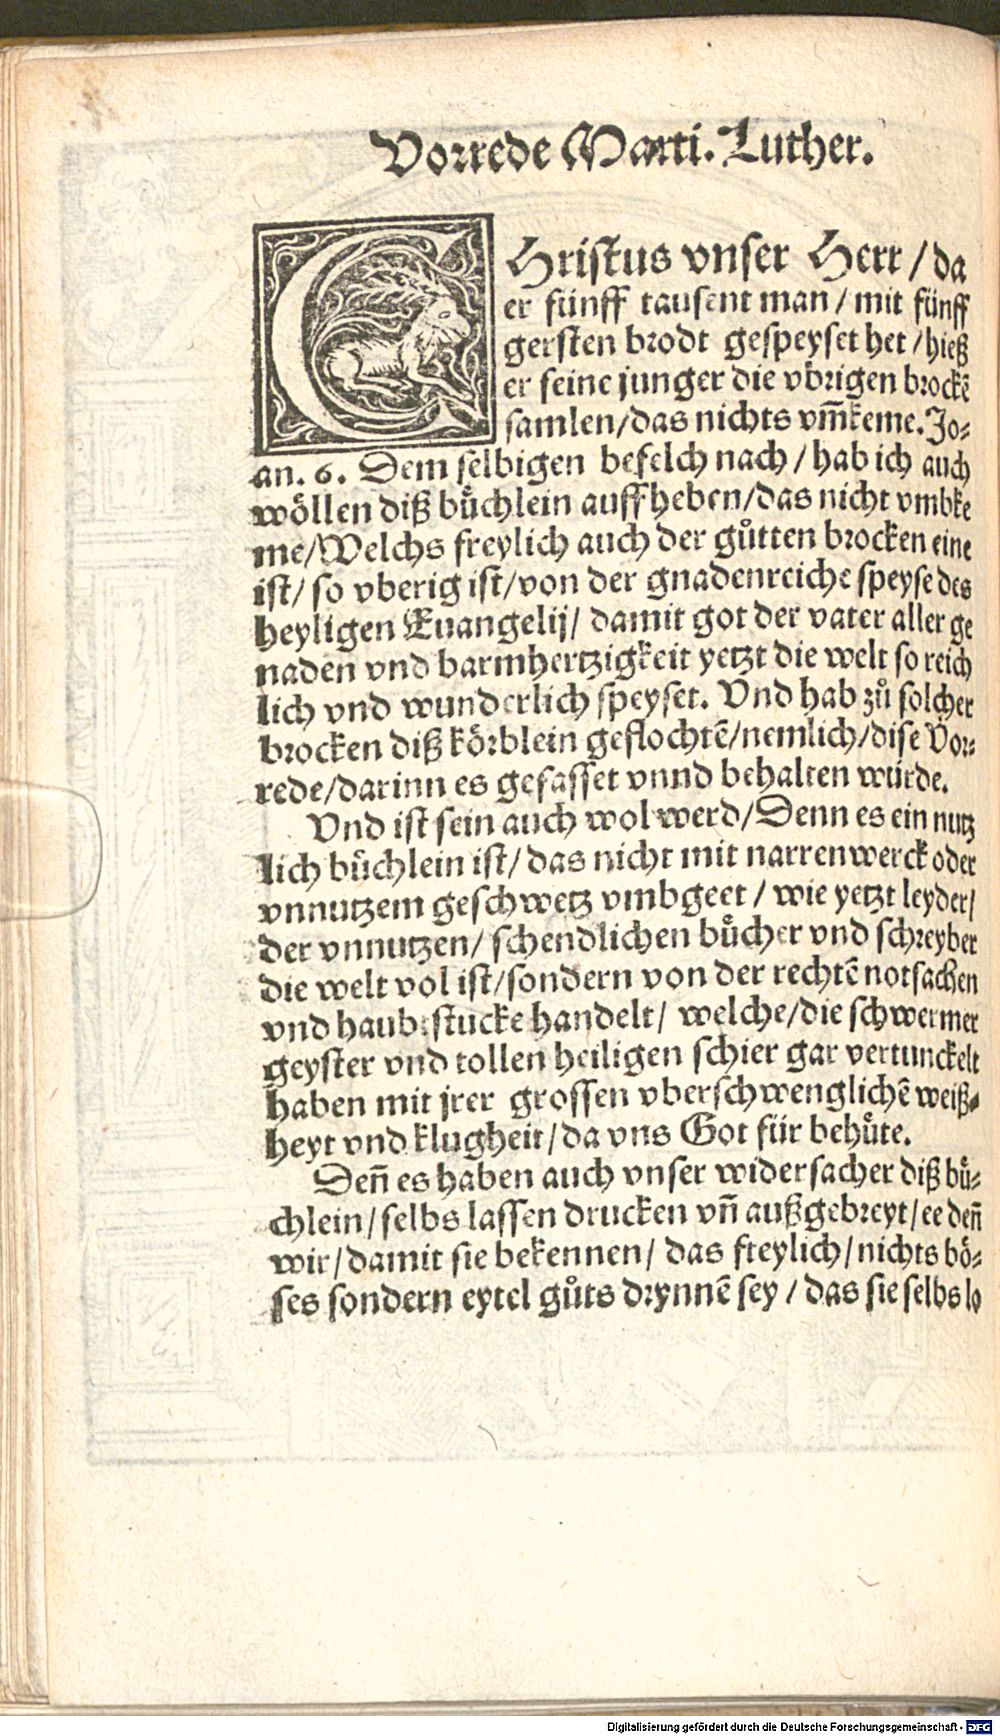 Vorrede Marti. Luther.
CHristus vnser Herr / da
er fünff tausent man / mit fünff
gersten brodt gespeyset het / hieß
er seine junger die vbrigen brockẽ
samlen / das nichts vm̃keme. Jo⸗
an. 6. Dem selbigen befelch nach / hab ich auch
wöllen diß bůchlein auffheben / das nicht vmbke
me / Welchs freylich auch der gůtten brocken eine
ist / so vberig ist / von der gnadenreiche speyse des
heyligen Euangelij / damit got der vater aller ge
naden vnd barmhertzigkeit yetzt die welt so reich
lich vnd wunderlich speyset. Vnd hab zů solcher
brocken diß körblein geflochtẽ / nemlich / dise Vor⸗
rede / darinn es gefasset vnnd behalten würde.
Vnd ist sein auch wol werd / Denn es ein nutz
lich bůchlein ist / das nicht mit narrenwerck oder
vnnutzem geschwetz vmbgeet / wie yetzt leyder /
der vnnutzen / schendlichen bücher vnd schreyber
die welt vol ist / sondern von der rechtẽ notsachen
vnd haubtstucke handelt / welche / die schwermer
geyster vnd tollen heiligen schier gar vertunckelt
haben mit jrer grossen vberschwenglichẽ weiß⸗
heyt vnd klugheit / da vns Got für behüte.
Deñ es haben auch vnser widersacher diß bü⸗
chlein / selbs lassen drucken vñ außgebreyt / ee deñ
wir / damit sie bekennen / das freylich / nichts bö⸗
ses sondern eytel gůts drynnẽ sey / das sie selbs lo
Digitalisierung gefördert durch die Deutsche Forschungsgemeinschaft - DFG